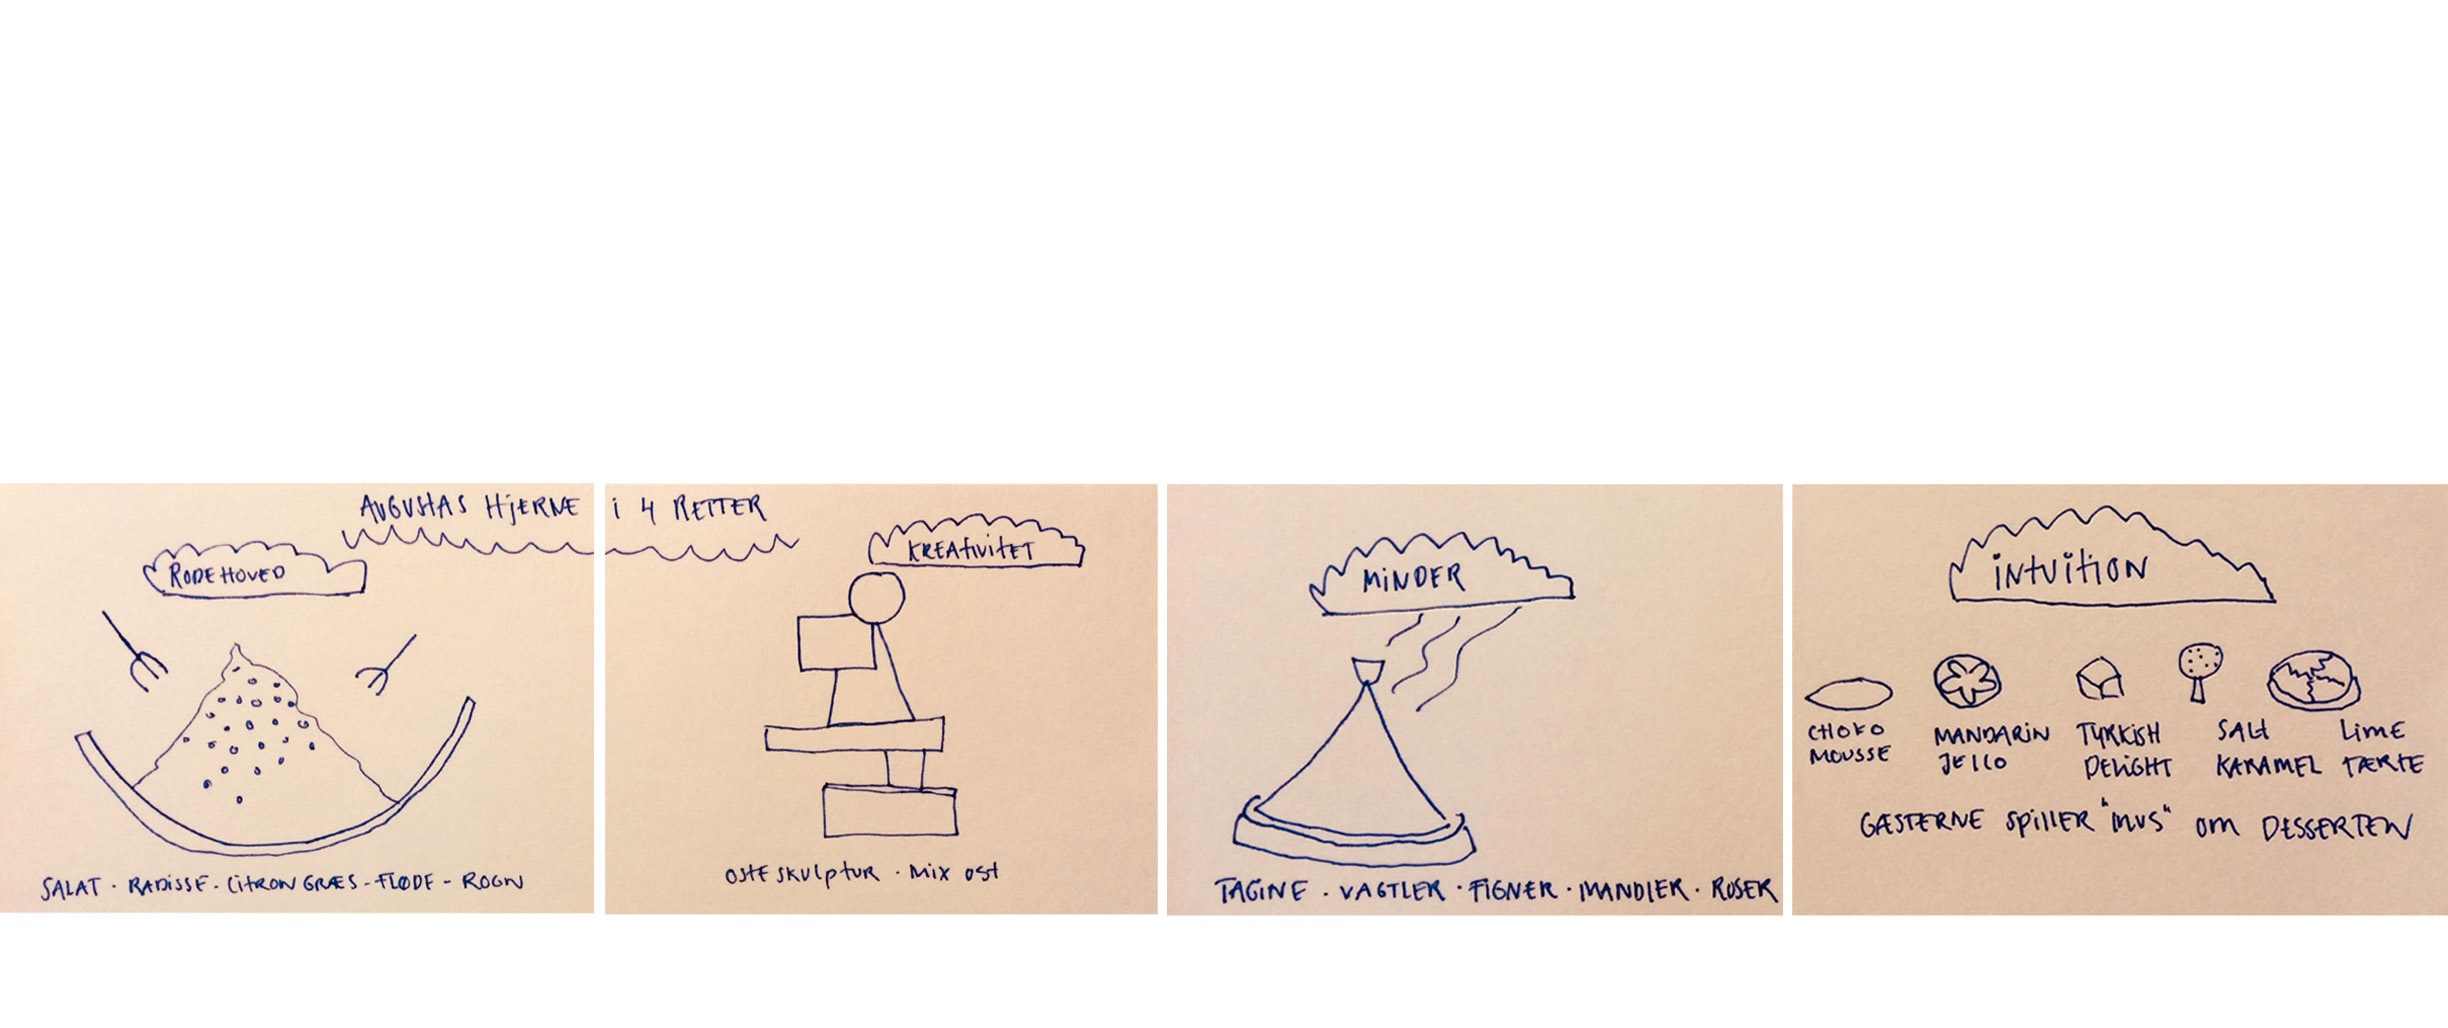 AUGUSTAS HJERNE i 4 RETTER
RODEHOVED
SALAT · RADISSE · CITRONGRÆS - FLØDE - ROGN
KREATIVITET
OSTESKULPTUR · MIX OST
MINDER
TAGINE · VAGTLER · FIGNER · MANDLER · ROSER
INTUITION
CHOKO MOUSSE
MANDARIN JELLO
TYRKISH DELIGHT
SALT KARAMEL
LIME TÆRTE
GÆSTERNE SPILLER "MUS" OM DESSERTEN